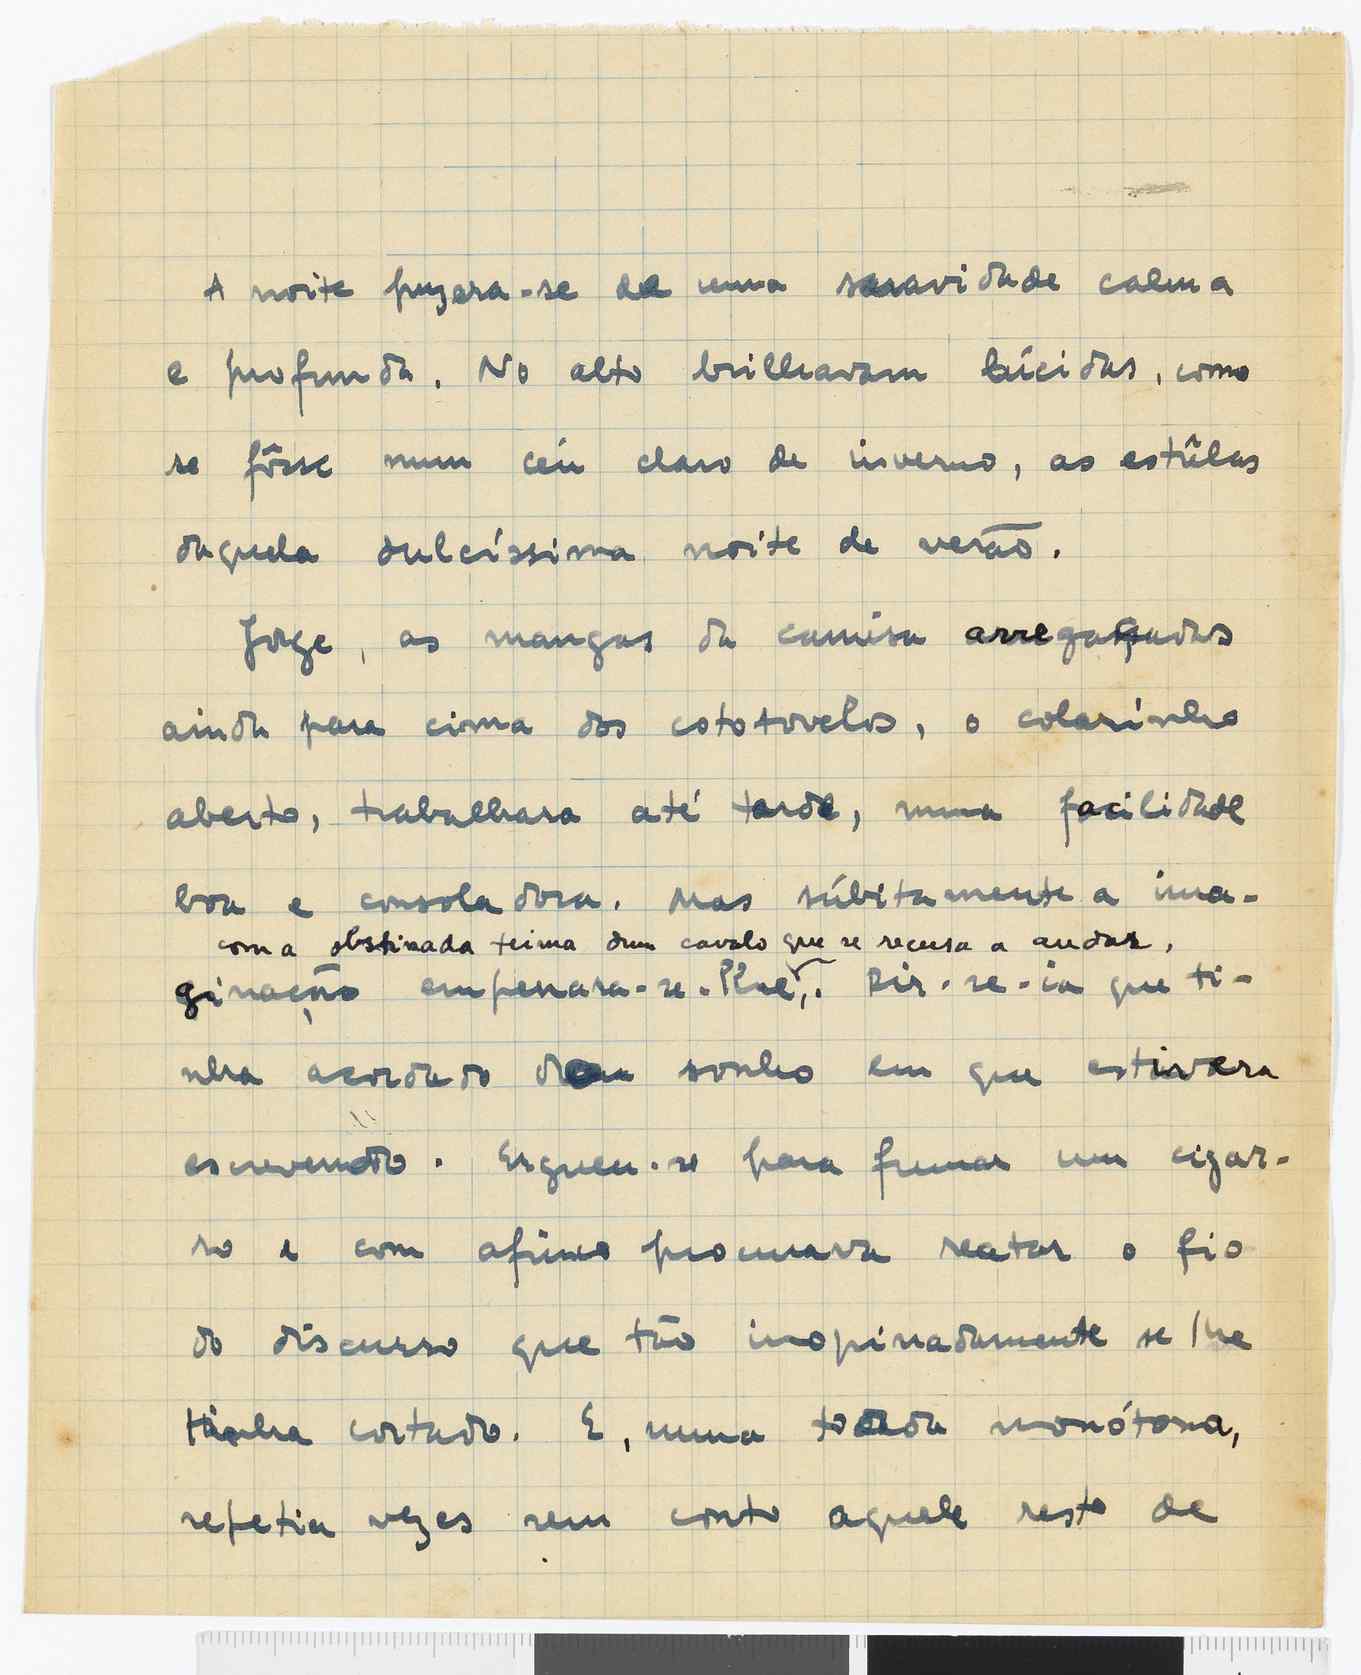 A noite puzera-se de uma suavidade calma
e profunda. No alto brilhavam lúcidas, como
se fôsse num céu claro de inverno, as estrêlas
daquela dulcíssima noite de verão.
Jorge, as mangas da camisa arregaçadas
ainda para cima dos cototovelos, o colarinho
aberto, trabalhara até tarde, numa facilidade
boa e consoladora. Mas súbitamente a ima-
com a obstinada teima dum cavalo que se recusa a andar,
ginação empenara-se. Dir-se-ia que ti-
nha acordado dum sonho em que estivera
escrevendo. Ergueu-se para fumar um cigar-
ro e com afinco procurava reatar o fio
do discurso que tão inopinadamente se lhe
tinha cortado. E, numa toada monótona,
repetia vezes sem conto aquele resto de